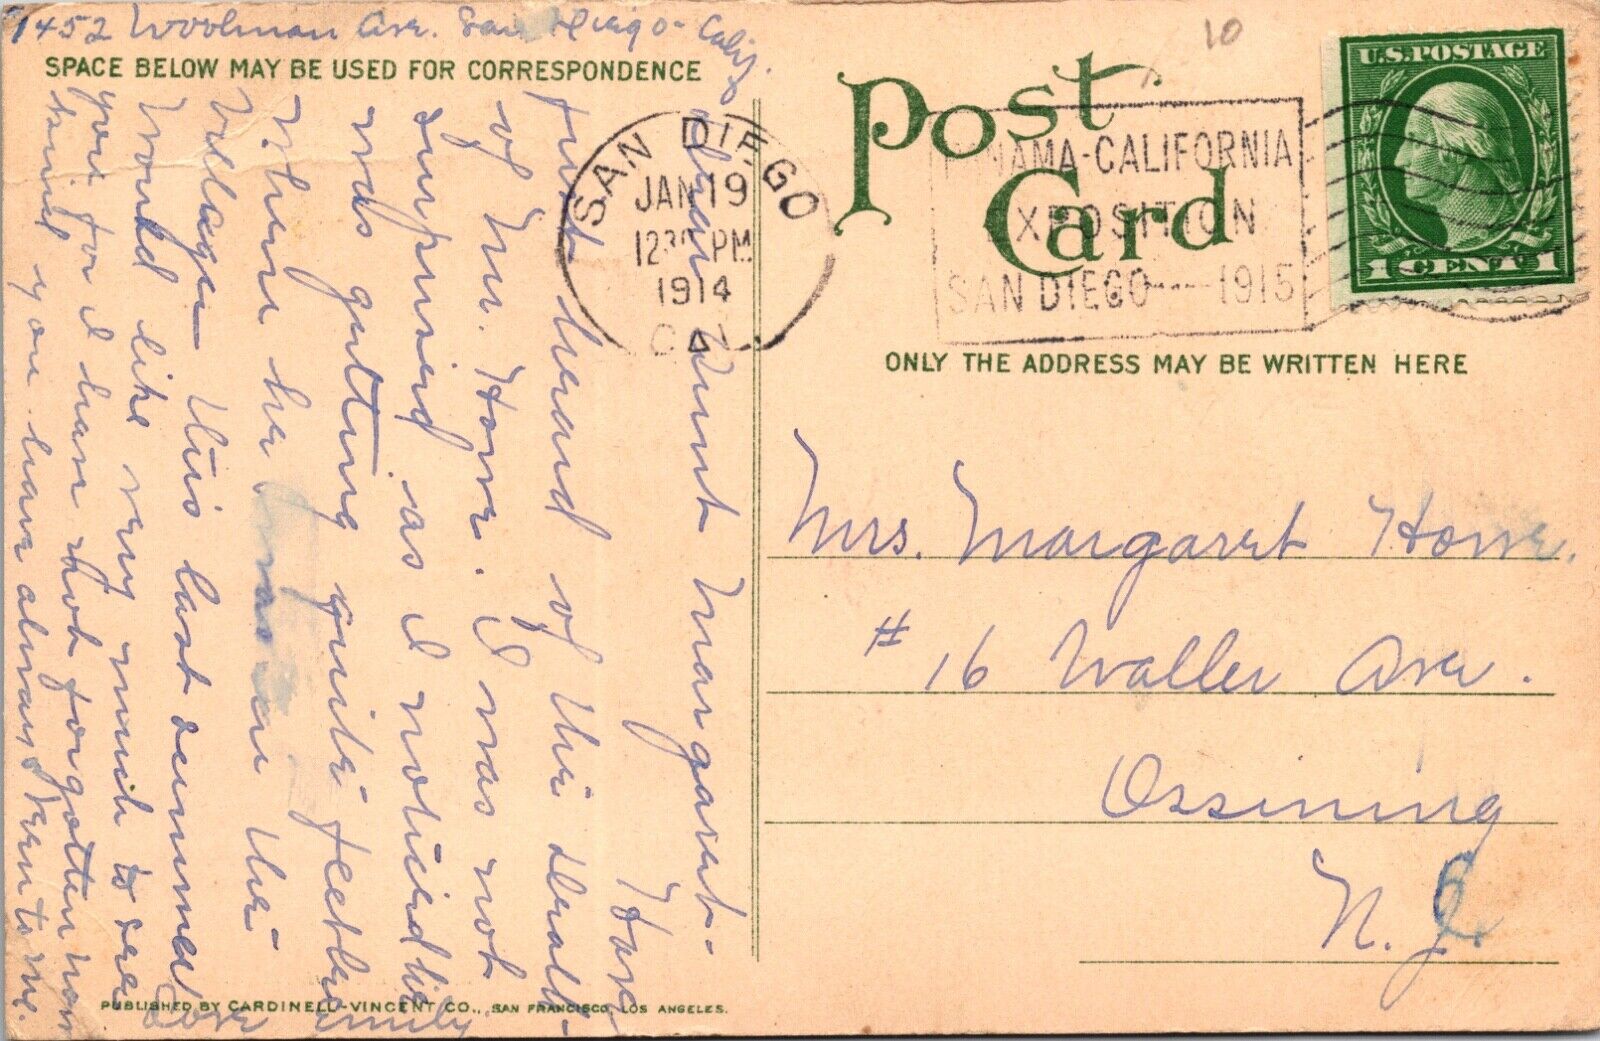 1452 Woolman Ave. San Diego - Calif.
SPACE BELOW MAY BE USED FOR CORRESPONDENCE
Dear Aunt Margaret - Have
just heard of the death
of Mr. Howe. I was not
surprised as I noticed he
was getting quite feeble
when he was in the
Village this last summer
Would like very much to see
you for I have not forgotten how
kind you have always been to me.
Love Emily
PUBLISHED BY CARDINELL-VINCENT CO., SAN FRANCISCO, LOS ANGELES.
SAN DIEGO
JAN 19
12 30 PM
1914
CAL
10
Post
Card
PANAMA-CALIFORNIA
EXPOSITION
SAN DIEGO----1915
U.S. POSTAGE
1 CENT 1
ONLY THE ADDRESS MAY BE WRITTEN HERE
Mrs. Margaret Howe.
# 16 Waller Ave.
Ossining
N.